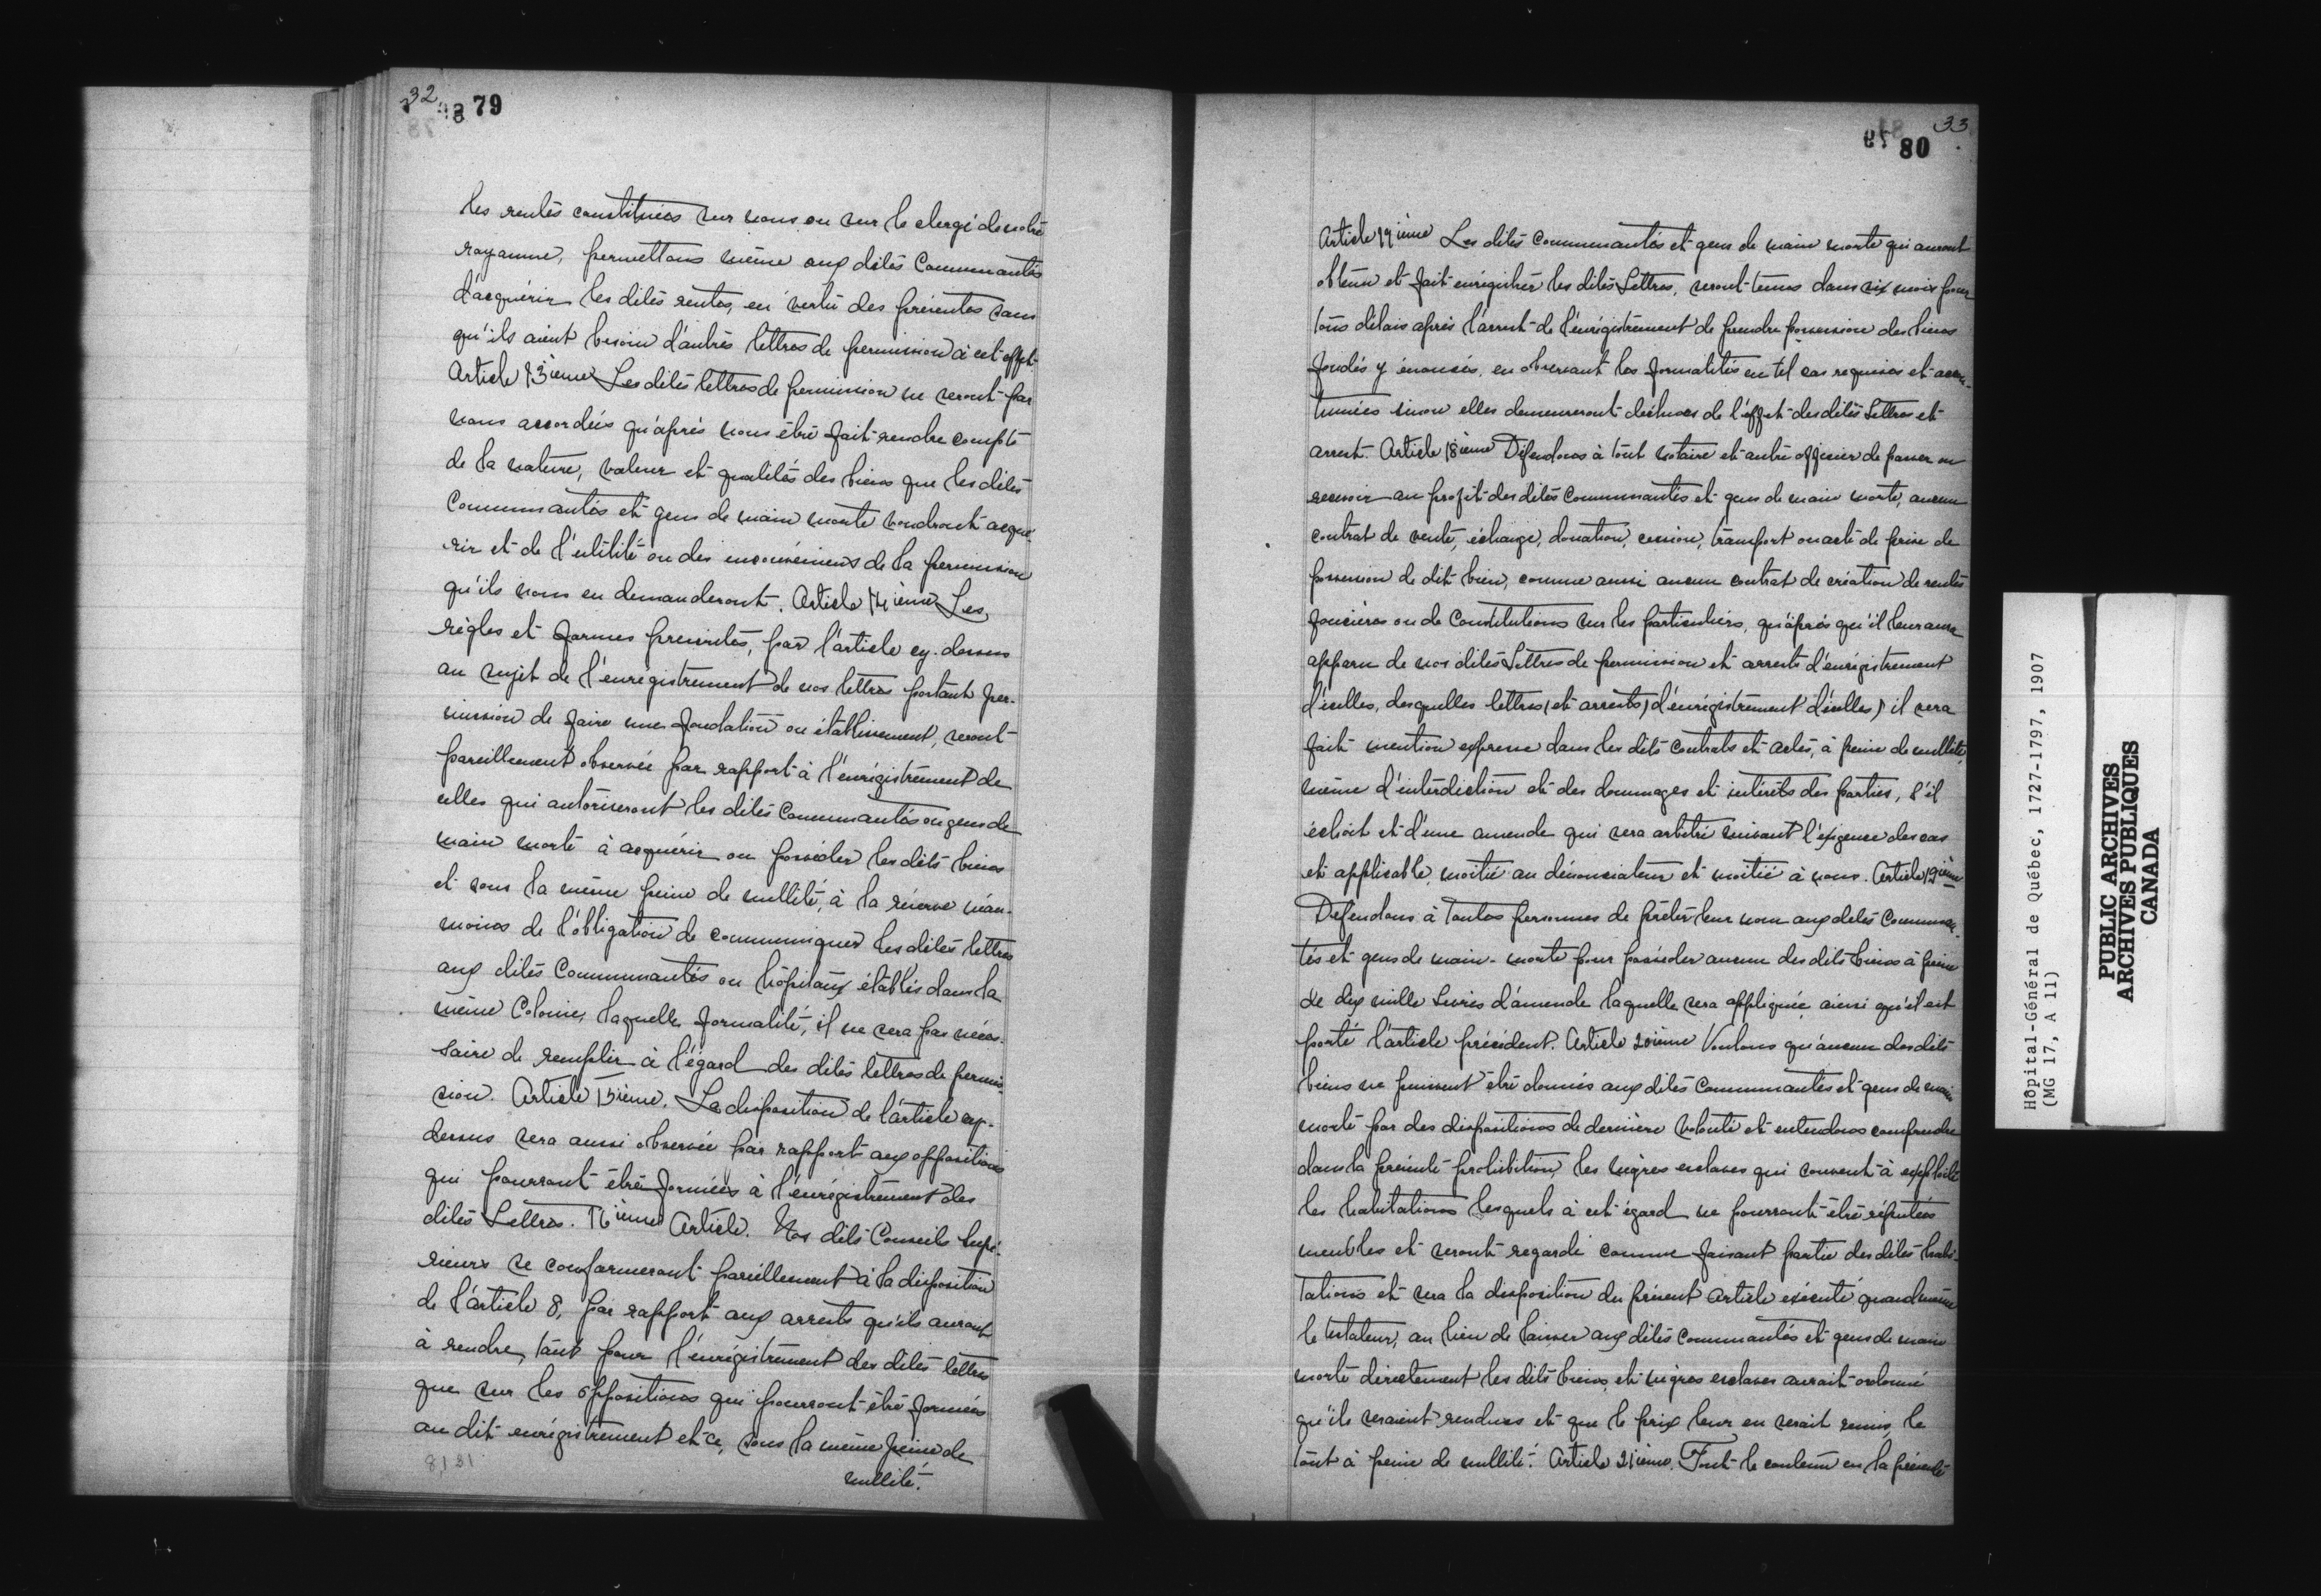 32 79
les rentes constituées sur nous ou sur le clergé de notre
royaume, permettons même aux dites Communautés
d'acquérir les dites rentes, en vertu des présentes sans
qu'ils aient besoin d'autres lettres de permission à cet effet.
Article 13ième Les dites lettres de permission ne seront par
nous accordées qu'après nous être fait rendre compte
de la nature, valeur et qualités des biens que les dites
Communautés et gens de main morte voudront acqué-
rir et de l'utilité ou des inconvéniens de la permission
qu'ils nous en demanderont. Article 14ième Les
règles et formes prescrites, par l'article cy-dessus
au sujet de l'enrégistrement de nos lettres portant per-
mission de faire une fondation ou établissement, seront
pareillement observée par rapport à l'enrégistrement de
celles qui autoriseront les dites Communautés ou gens de
main morte à acquérir ou posséder les dits biens
et sous la même peine de nullité, à la réserve néan-
moins de l'obligation de communiquer les dites lettres
aux dites Communautés ou hôpitaux établis dans la
même Colonie, laquelle formalité, il ne sera pas néces-
saire de remplir à l'égard des dites lettres de permis-
sion. Article 15ième. La disposition de l'article cy-
dessus sera aussi observée par rapport aux oppositions
qui pourront être formées à l'enrégistrement des
dites Lettres. 16ième Article. Nos dits Conseils Supé-
rieurs se conformeront pareillement à la disposition
de l'article 8, par rapport aux arrests qu'ils auront
à rendre, tant pour l'enrégistrement des dites lettres
que sur les oppositions qui pourront être formées
au dit enrégistrement et ce, sous la même peine de
nullité.
33
80
Article 17ième Les dites Communautés et gens de main morte qui auront
obtenu et fait enrégistrer les dites Lettres, seront tenus dans six mois pour
tous délais après l'arrest de l'enrégistrement de prendre possession des biens
fondés y énoncés, en observant les formalités en tel cas requises et accou-
tumées sinon elles demeureront déchues de l'effet des dites Lettres et
arrest. Article 18ième Défendons à tout notaire et autre officier de passer ou
recevoir au profit des dites Communautés et gens de main morte, aucun
contrat de vente, échange, donation, cession, transport ou acte de prise de
possession de dit bien, comme aussi aucun contrat de création de rentes
foncières ou de Constitutions sur les particuliers, qu'après qu'il leur aura
apparu de nos dites Lettres de permission et arrests d'enrégistrement
d'icelles, desquelles lettres (et arrests) d'enrégistrement d'icelles) il sera
fait mention expresse dans les dits Contrats et Actes, à peine de nullité,
même d'interdiction et des dommages et intérêts des parties, s'il
échoit et d'une amende qui sera arbitré suivant l'exigence des cas
et applicable, moitié au dénonciateur et moitié à nous. Article 19ième
Défendons à toutes personnes de prêter leur nom aux dites Communau-
tés et gens de main-morte pour posséder aucun des dits biens à peine
de dix mille Livres d'amende laquelle sera appliquée ainsi qu'il est
porté l'article précédent. Article 20ième Voulons qu'aucun des dits
biens ne puissent être donnés aux dites Communautés et gens de main
morte par des dispositions de dernière volonté et entendons comprendre
dans la présente prohibition, les nègres esclaves qui servent à exploiter
les habitations lesquels à cet égard ne pourront être réputés
meubles et seront regardé comme faisant partie des dites habi-
tations et sera la disposition du présent Article exécuté quand même
le testateur, au lieu de laisser aux dites Communautés et gens de main
morte directement les dits biens, et nègres esclaves aurait ordonné
qu'ils seraient vendues et que le prix leur en serait remis, le
tout à peine de nullité. Article 21ième. Tout le contenu en la présente
Hôpital-Général de Québec, 1727-1797, 1907
(MG 17, A 11)
PUBLIC ARCHIVES
ARCHIVES PUBLIQUES
CANADA